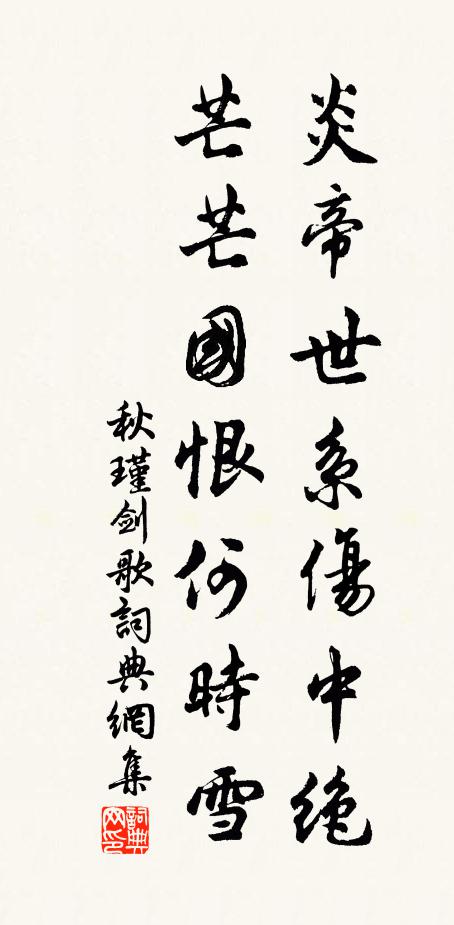 炎帝世系傷中絶
芒芒國恨何時雪
秋瑾剑歌詞典網集
詞典网印